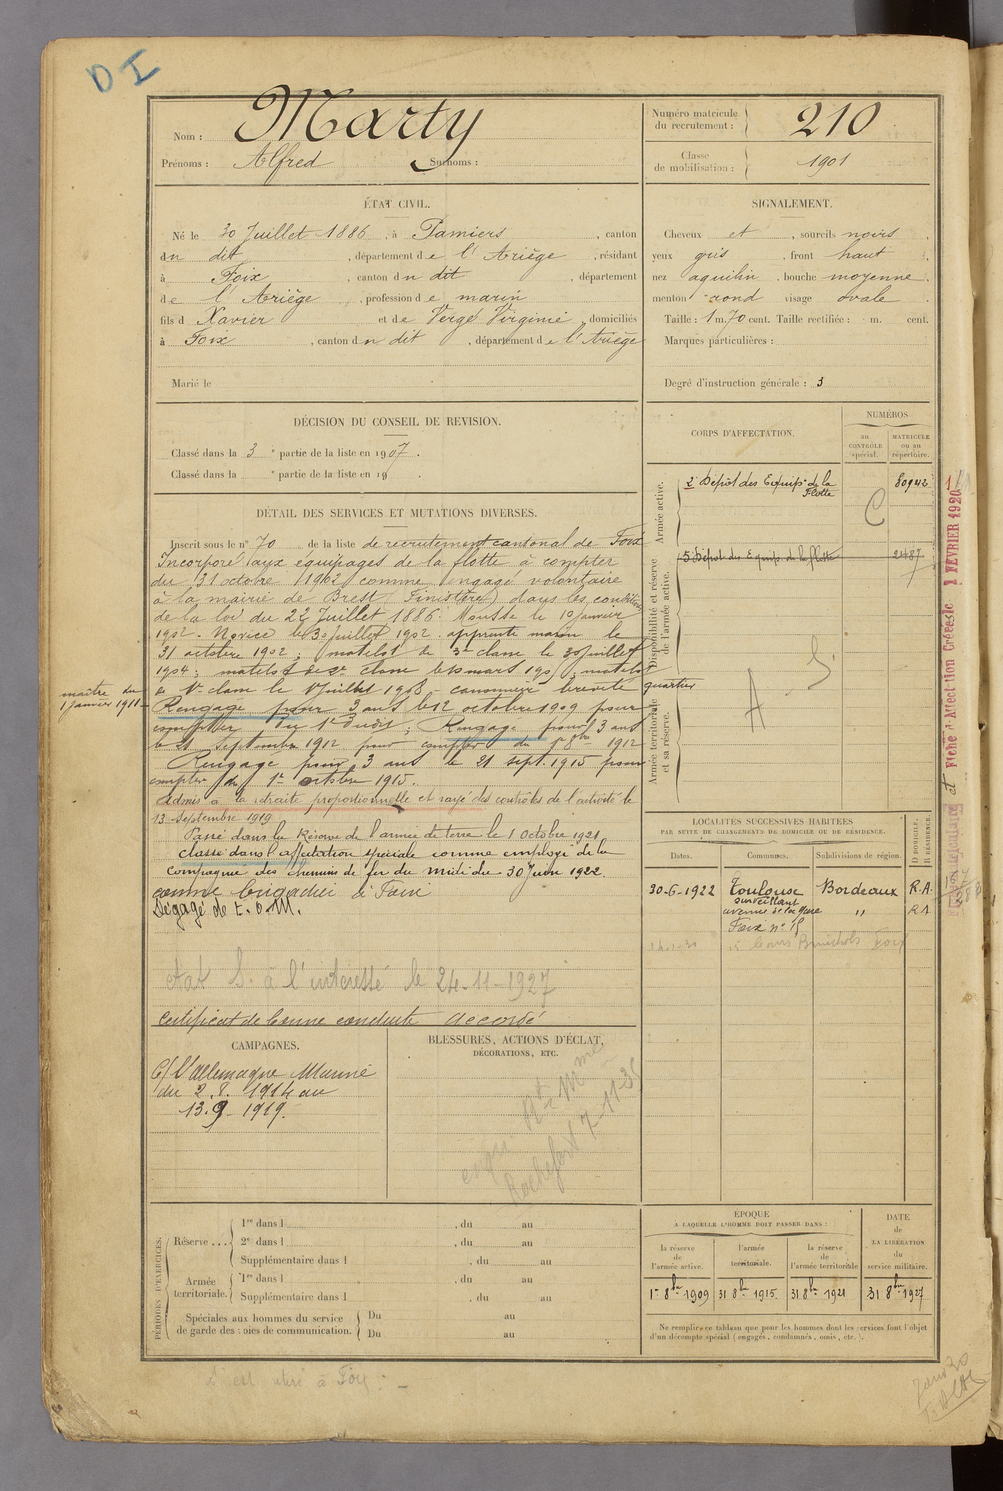 D I
Nom : Marty
Prénoms : Alfred Surnoms :
Numéro matricule du recrutement : 210
Classe de mobilisation : 1901
ÉTAT CIVIL.
Né le 30 Juillet 1886, à Pamiers, canton
dn dit, département de l'Ariège, résidant
à Foix, canton dn dit, département
de l'Ariège, profession de marin
fils d Xavier et de Vergé Virginie, domiciliés
à Foix, canton dn dit, département de l'Ariège
Marié le
SIGNALEMENT.
Cheveux et, sourcils noirs,
yeux gris, front haut,
nez aquilin, bouche moyenne,
menton rond visage ovale
Taille : 1 m. 70 cent. Taille rectifiée : m. cent.
Marques particulières :
Degré d'instruction générale : 3
DÉCISION DU CONSEIL DE REVISION.
Classé dans la 3 e partie de la liste en 1907.
Classé dans la e partie de la liste en 19
DÉTAIL DES SERVICES ET MUTATIONS DIVERSES.
Inscrit sous le n° 70 de la liste de recrutement cantonal de Foix
Incorporé aux équipages de la flotte à compter
du 31 octobre 1902 comme engagé volontaire
à la mairie de Brest (Finistère) dans les conditions
de la loi du 22 Juillet 1886. Mousse le 10 janvier
1902. Novice le 30 juillet 1902. apprenti marin le
31 octobre 1902 ; matelot de 3e classe le 30 Juillet
1904 ; matelot de 2e classe le 10 mars 190 ; matelot
de 1re classe le 1 Juillet 1908 - canonnier breveté quartier
maître du 1 janvier 1911
Rengagé pour 3 ans le 12 octobre 1909 pour
compter du 1er dudit ; Rengagé pour 3 ans
le 21 septembre 1912 pour compter du 1er 8bre 1912
Rengagé pour 3 ans le 21 sept. 1915 pour
compter du 1er octobre 1915.
Admis à la retraite proportionnelle et rayé des contrôles de l'activité le
13 Septembre 1919
Passé dans la Réserve de l'armée de terre le 1 Octobre 1921
Classé dans l'affectation spéciale comme employé de la
Compagnie des chemins de fer du Midi du 30 Juin 1922.
comme brigadier à Foix
Dégagé de t. o. M.
état S. à l'intéressé le 24-11-1927
Certificat de bonne conduite Accordé
CORPS D'AFFECTATION.
NUMÉROS
au CONTRÔLE spécial.
MATRICULE ou au répertoire.
Armée active.
2e Dépôt des Equip. de la Flotte 80942
C
Disponibilité et réserve de l'armée active.
5 Dépôt des Equip. de la flotte 2487
A S.
Armée territoriale et sa réserve.
1 FÉVRIER 1920
LOCALITÉS SUCCESSIVES HABITÉES
PAR SUITE DE CHANGEMENTS DE DOMICILE OU DE RÉSIDENCE.
Dates. Communes. Subdivisions de région. D DOMICILE. R RÉSIDENCE.
30-6-1922 Toulouse Bordeaux R.A.
surveillant
avenue de la gare " R.A
Foix n° 15
CAMPAGNES.
C/ l'allemagne Marine
du 2. 8. 1914 au
13. 9 1919.
BLESSURES, ACTIONS D'ÉCLAT, DÉCORATIONS, ETC.
Rochefort 7-11-35
PÉRIODES D'EXERCICES.
Réserve ... 1re dans l , du au
2e dans l , du au
Supplémentaire dans l , du au
Armée territoriale. 1re dans l , du au
Supplémentaire dans l , du au
Spéciales aux hommes du service de garde des voies de communication. Du au
Du au
ÉPOQUE
À LAQUELLE L'HOMME DOIT PASSER DANS :
la réserve de l'armée active.
l'armée territoriale.
la réserve de l'armée territoriale
DATE DE LA LIBÉRATION du service militaire.
1er 8bre 1909 31 8bre 1915 31 8bre 1921 31 8bre 1927
Ne remplir ce tableau que pour les hommes dont les services font l'objet
d'un décompte spécial (engagés, condamnés, omis, etc.).